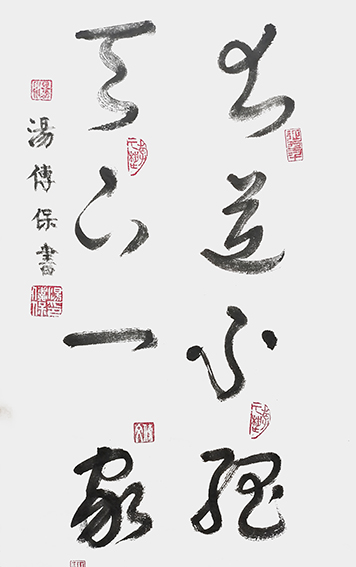 大道不孤
天下一家
湯傳保書